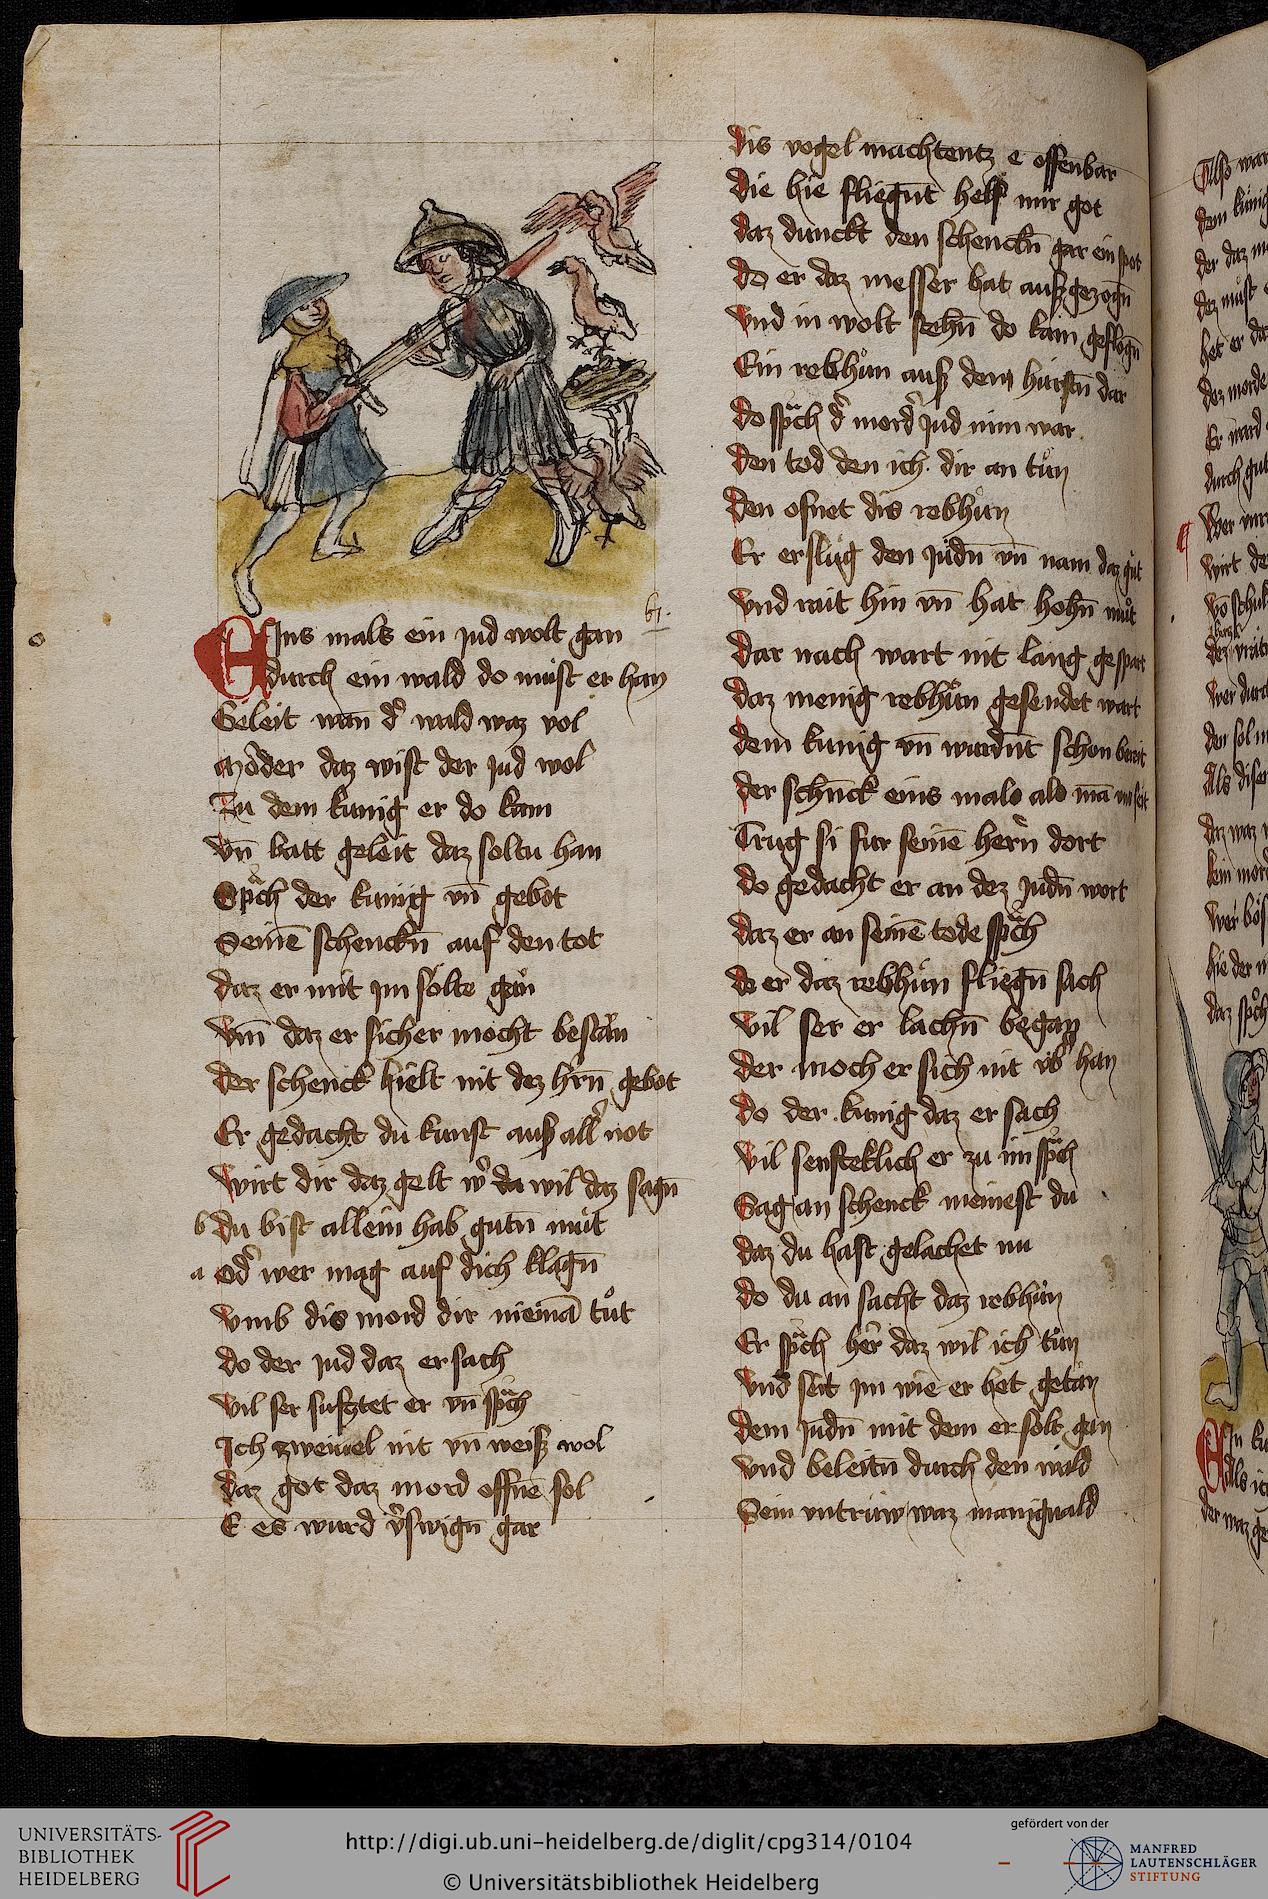 61.
EIns mals ein jud wolt gan
durch ein wald do must er han
Geleit wañ d' wald waz vol
mȯder daz wist der jud wol
Zu dem kunig er do kam
vn̄ batt geleit daz soltu han
Spͣch der kunig vn̄ gebot
Seinē schenckn̄ auf den tot
daz er mit jm sölte gän
vm̄ daz er sicher mocht bestän
der schenck hielt nit dez hr̄n gebot
Er gedacht du kunst auß all' not
wirt dir daz gelt w' da wil daz sagn̄
b du bist allein hab gutn̄ můt
a od' wer mag auf dich klagn̄
vmb dis mord dir niemā tůt
do der jud daz ersach
vil ser sufztet er vn̄ spͣch
Ich zweiuel nit vn̄ weiß wol
daz got daz mord offnē sol
E es wurd v'swign̄ gar
dis vogel machtentz e offenbar
die hie fliegnt helf mir got
daz dunckt den schenckn̄ gar ein spot
do er daz messer hat auß gezogn̄
vnd in wolt stechn̄ do kam geflogn̄
Ein rebhůn auß dem hurstn̄ dar
do spͣch d' mord' jud nim war
den tod den ich dir an tůn
den ofnet dis rebhůn
Er erslůg den judn̄ vn̄ nam daz gůt
vnd rait hin vn̄ hat hohn̄ můt
dar nach wart nit lang gespart
daz menig rebhůn gesendet wart
dem kunig vn̄ wurdnt schon bereit
der schnck eins mals als mā vns seit
Trug si fur seinē hern̄ dort
do gedacht er an dez judn̄ wort
daz er an seinē tode spͣch
do er daz rebhůn fliegn̄ sach
vil ser er lachn̄ began
der moch er sich nit vb' han
do der kunig daz ersach
vil senfteklich er zu im spͣch
Sag an schenck meinest du
daz du hast gelachet nu
do du an sacht daz rebhůn
Er spͣch her daz wil ich tůn
vnd seit jm wie er het getan
dem judn̄ mit dem er solt gan
vnd beleitn̄ durch den wald
Sein vntruw waz maniguald
UNIVERSITÄTS-
BIBLIOTHEK
HEIDELBERG
http://digi.ub.uni-heidelberg.de/diglit/cpg314/0104
© Universitätsbibliothek Heidelberg
gefördert von der
MANFRED
LAUTENSCHLÄGER
STIFTUNG